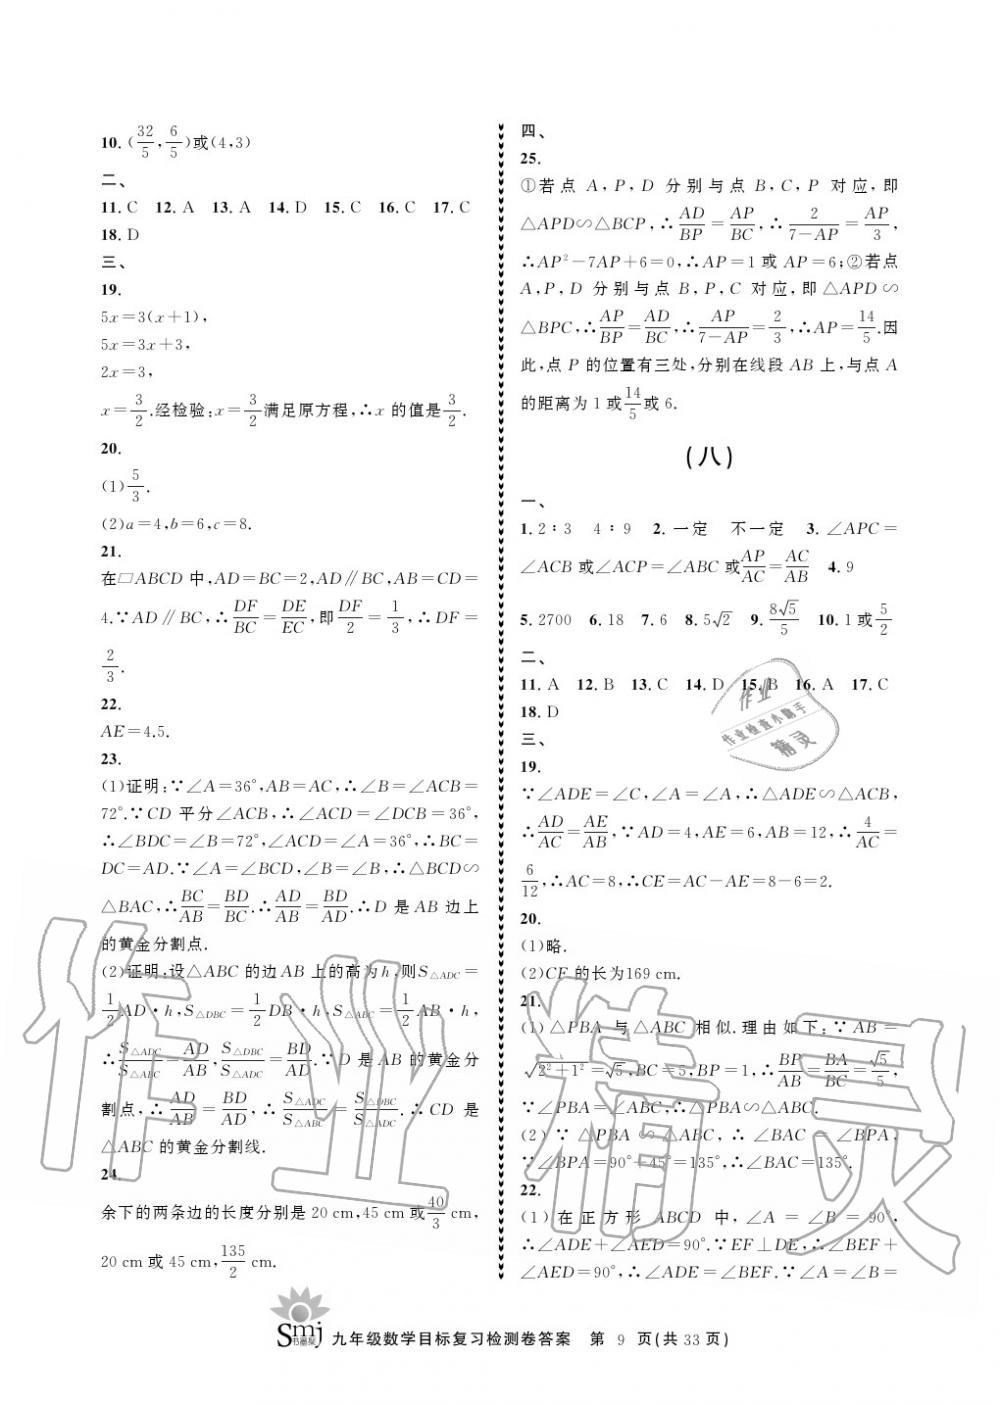 10. (32/5, 6/5)或(4,3)
二、
11. C 12. A 13. A 14. D 15. C 16. C 17. C
18. D
三、
19.
5x=3(x+1),
5x=3x+3,
2x=3,
x=3/2.经检验:x=3/2满足原方程,∴x 的值是3/2.
20.
(1)5/3.
(2)a=4,b=6,c=8.
21.
在□ABCD 中,AD=BC=2,AD∥BC,AB=CD=
4.∵AD∥BC,∴DF/BC=DE/EC,即DF/2=1/3,∴DF=
2/3.
22.
AE=4.5.
23.
(1)证明:∵∠A=36°,AB=AC,∴∠B=∠ACB=
72°.∵CD 平分∠ACB,∴∠ACD=∠DCB=36°,
∴∠BDC=∠B=72°,∠ACD=∠A=36°,∴BC=
DC=AD.∵∠A=∠BCD,∠B=∠B,∴△BCD∽
△BAC,∴BC/AB=BD/BC.∴AD/AB=BD/AD.∴D 是 AB 边上
的黄金分割点.
(2)证明:设△ABC 的边 AB 上的高为 h,则S△ADC=
1/2AD·h,S△DBC=1/2DB·h,S△ABC=1/2AB·h,
∴S△ADC/S△ABC=AD/AB,S△DBC/S△ADC=BD/AD.∵D 是 AB 的黄金分
割点,∴AD/AB=BD/AD,∴S△ADC/S△ABC=S△DBC/S△ADC.∴CD 是
△ABC 的黄金分割线.
24.
余下的两条边的长度分别是 20 cm,45 cm 或40/3 cm,
20 cm 或 45 cm,135/2 cm.
四、
25.
①若点 A,P,D 分别与点 B,C,P 对应,即
△APD∽△BCP,∴AD/BP=AP/BC,∴2/(7-AP)=AP/3,
∴AP²-7AP+6=0,∴AP=1 或 AP=6;②若点
A,P,D 分别与点 B,P,C 对应,即△APD∽
△BPC,∴AP/BP=AD/BC,∴AP/(7-AP)=2/3,∴AP=14/5.因
此,点 P 的位置有三处,分别在线段 AB 上,与点 A
的距离为 1 或14/5或 6.
(八)
一、
1. 2∶3 4∶9 2. 一定 不一定 3. ∠APC=
∠ACB 或∠ACP=∠ABC 或AP/AC=AC/AB 4. 9
5. 2700 6. 18 7. 6 8. 5√2 9. 8√5/5 10. 1 或5/2
二、
11. A 12. B 13. C 14. D 15. B 16. A 17. C
18. D
三、
19.
∵∠ADE=∠C,∠A=∠A,∴△ADE∽△ACB,
∴AD/AC=AE/AB,∵AD=4,AE=6,AB=12,∴4/AC=
6/12,∴AC=8,∴CE=AC-AE=8-6=2.
20.
(1)略.
(2)CF 的长为169 cm.
21.
(1)△PBA 与△ABC 相似.理由如下:∵AB=
√(2²+1²)=√5,BC=5,BP=1,∴BP/AB=BA/BC=√5/5,
∵∠PBA=∠ABC,∴△PBA∽△ABC.
(2)∵△PBA∽△ABC,∴∠BAC=∠BPA,
∵∠BPA=90°+45°=135°,∴∠BAC=135°.
22.
(1)在正方形 ABCD 中,∠A=∠B=90°,
∴∠ADE+∠AED=90°.∵EF⊥DE,∴∠BEF+
∠AED=90°,∴∠ADE=∠BEF.∵∠A=∠B=
Smj 九年级数学目标复习检测卷答案 第 9 页(共 33 页)
作业
作业检查小助手
精灵
作业精灵